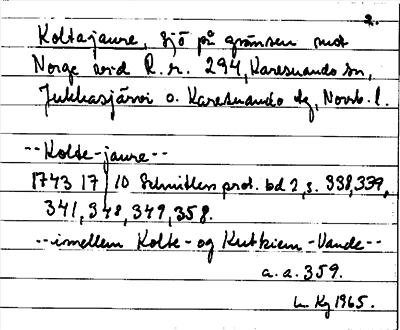 2.
Koltajaure, sjö på gränsen mot
Norge vid R.r. 294, Karesuando sn,
Jukkasjärvi o. Karesuando tg, Norrb. l.
--Kolte-jaure--
1743 17/10 Schnitlers prot. bd 2, s. 338, 339,
341, 348, 349, 358.
--imellem Kolte- og Kutkiem-Vande--
a. a. 359.
Kg 1965.